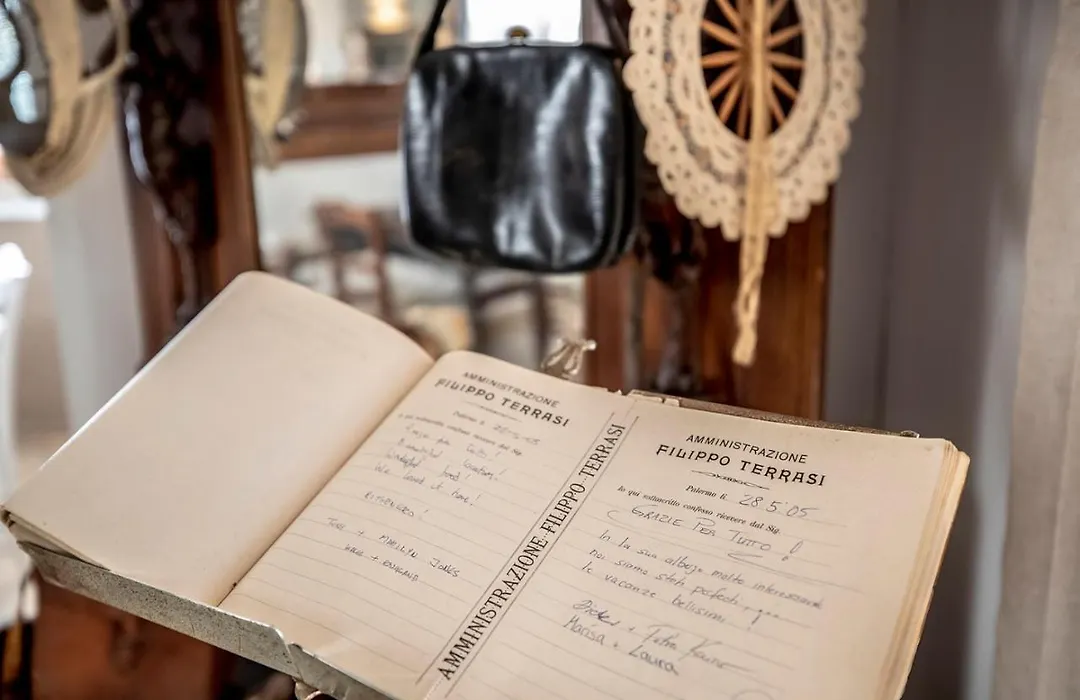 AMMINISTRAZIONE
FILIPPO TERRASI
Palermo li
Io qui sottoscritto confesso ricevere dal Sig.
beautiful location!
Wonderful food!
We loved it here!
+ MARILYN JONES
+ ENGLAND
AMMINISTRAZIONE FILIPPO TERRASI
AMMINISTRAZIONE
FILIPPO TERRASI
Palermo li 28.5.05
Io qui sottoscritto confesso ricevere dal Sig.
GRAZIE PER TUTTO!
In la sua albergo molto interessante
noi siamo stati perfecti, 
le vacanze bellisimi!
+ Petra
Marisa + Laura